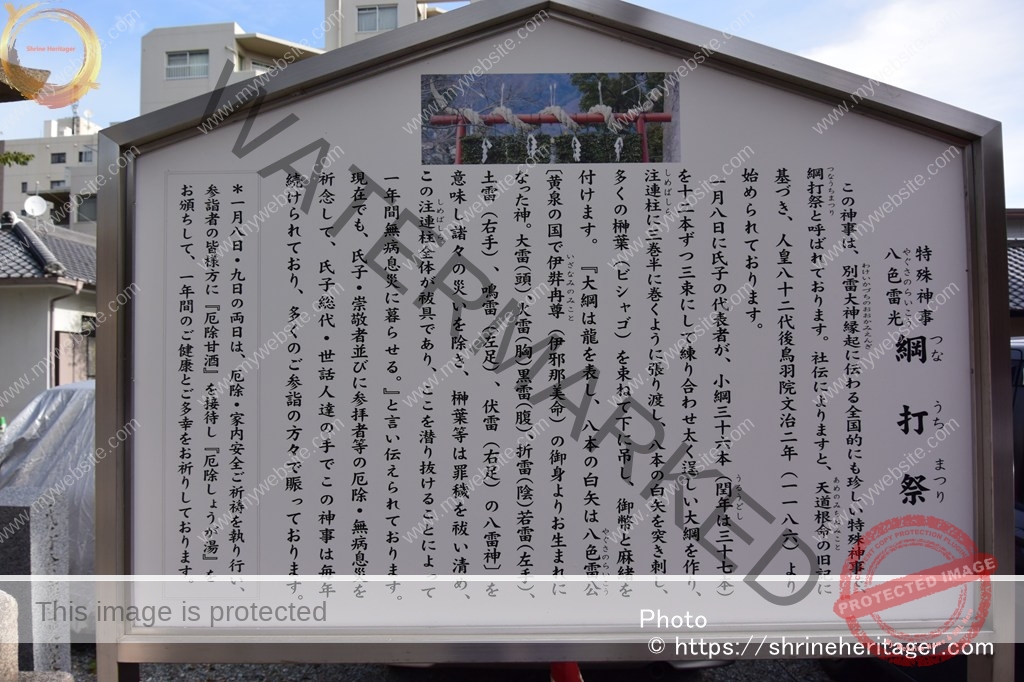 特殊神事
八色雷光
やくさのらいこう
綱打祭
つな うち まつり
この神事は、別雷大神縁起に伝わる全国的にも珍しい特殊神事で、
わけいかづちのおおかみえんぎ
綱打祭と呼ばれております。社伝によりますと、天道根命の旧記に
つなうちまつり
あめのみちねのみこと
基づき、人皇八十二代後鳥羽院文治二年（一一八六）より
始められております。
一月八日に氏子の代表者が、小綱三十六本（閏年は三十七本）
うるうどし
を十二本ずつ三束にして練り合わせ太く逞しい大綱を作り、
注連柱に三巻半に巻くように張り渡し、八本の白矢を突き刺し、
しめばしら
多くの榊葉（ビシャゴ）を束ねて下に吊し、御幣と麻緒を
付けます。『大綱は龍を表し、八本の白矢は八色雷公
やくさのらいこう
〔黄泉の国で伊弉冉尊（伊邪那美命）の御身よりお生まれに
いざなみのみこと
なった神。大雷（頭）、火雷（胸）黒雷（腹）、折雷（陰）若雷（左手）、
土雷（右手）、鳴雷（左足）、伏雷（右足）の八雷神〕を
意味し諸々の災いを除き、榊葉等は罪穢を祓い清め、
この注連柱全体が祓具であり、ここを潜り抜けることによって
しめばしら
一年間無病息災に暮らせる。』と言い伝えられております。
現在でも、氏子・崇敬者並びに参拝者等の厄除・無病息災を
祈念して、氏子総代・世話人達の手でこの神事は毎年
続けられており、多くのご参詣の方々で賑っております。
＊一月八日・九日の両日は、厄除・家内安全ご祈祷を執り行い、
参詣者の皆様方に『厄除甘酒』を接待し『厄除しょうが湯』を
お頒ちして、一年間のご健康とご多幸をお祈りしております。
Shrine Heritager
WATERMARKED
www.mywebsite.com
This image is protected
Photo
© https://shrineheritager.com
PROTECTED